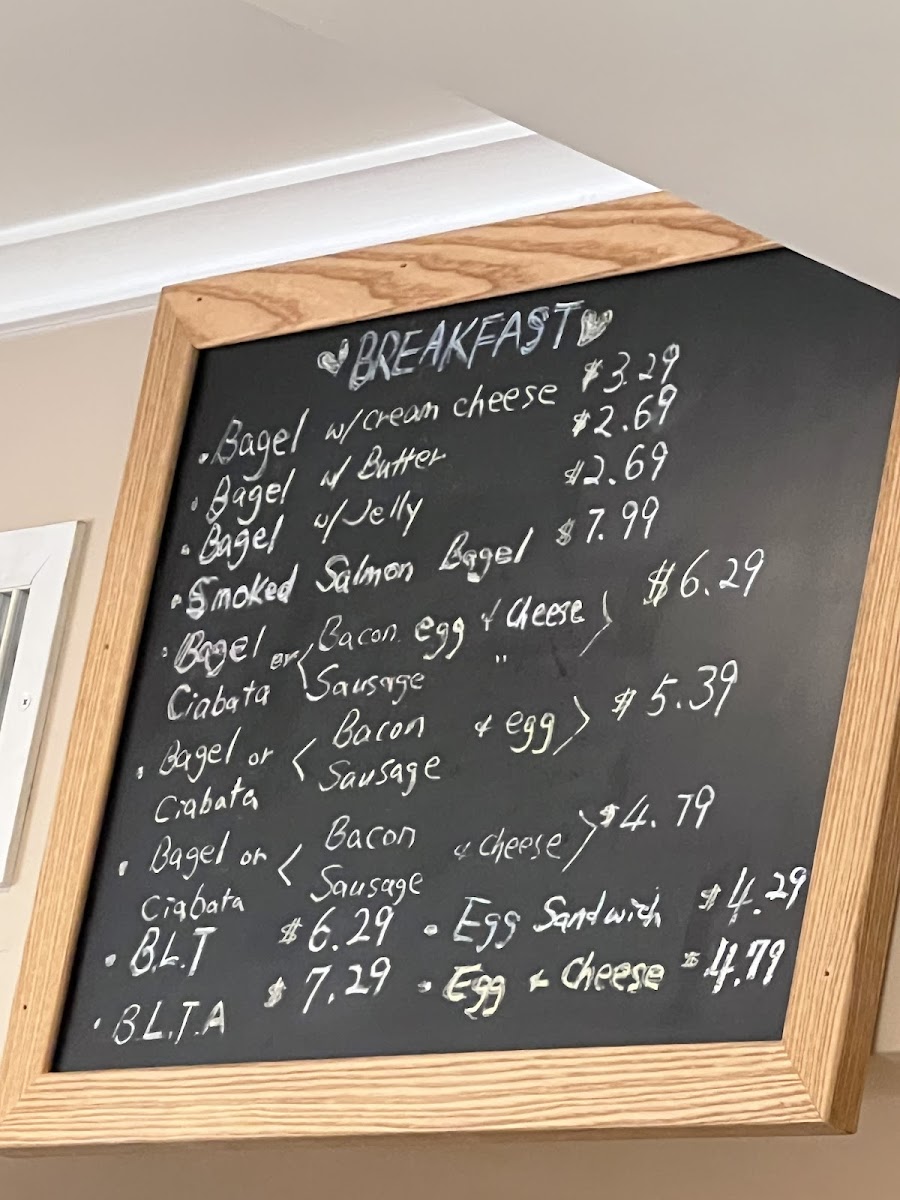 BREAKFAST
• Bagel w/cream cheese $3.29
• Bagel w/ Butter $2.69
• Bagel w/Jelly $2.69
• Smoked Salmon Bagel $7.99
• Bagel or < Bacon egg & Cheese > $6.29
Ciabata Sausage "
• Bagel or < Bacon & egg > $5.39
Ciabata Sausage
• Bagel or < Bacon & cheese > $4.79
Ciabata Sausage
• B.L.T $6.29 • Egg Sandwich $4.29
• B.L.T.A $7.29 • Egg & Cheese $4.79